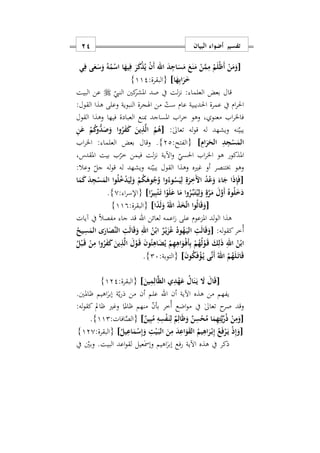 تفسير أضواء البيان
٢٤
[وَمَنْ أَظْلَمُ مِمَّنْ مَنَعَ مَسَاجِدَ اللهِ أَنْ يُذْكَرَ فِيهَا اسْمُهُ وَسَعَى فِي
خَرَابِهَا] {البقرة:١١٤}
قال بعض العلماء: نزلت في صد المشركين النبيّ ﷺ عن البيت
الحرام في عمرة الحديبية عام ستّ من الهجرة النبوية وعلى هذا القول:
فالخراب معنوي، وهو خراب المساجد بمنع العبادة فيها وهذا القول
يبيّنه ويشهد له قوله تعالىٰ: [هُمُ الَّذِينَ كَفَرُوا وَصَدُّوكُمْ عَنِ
المَسْجِدِ الحَرَامِ] {الفتح:٢٥}. وقال بعض العلماء: الخراب
المذكور هو الخراب الحسيّ والآية نزلت فيمن خرَّب بيت المقدس،
وهو بختنصر أو غيره وهذا القول يبيّنه ويشهد له قوله جلّ وعلا:
[فَإِذَا جَاءَ وَعْدُ الآَخِرَةِ لِيَسُوءُوا وُجُوهَكُمْ وَلِيَدْخُلُوا المَسْجِدَ كَمَا
دَخَلُوهُ أَوَّلَ مَرَّةٍ وَلِيُتَبِّرُوا مَا عَلَوْا تَتْبِيرًا] {الإسراء:٧}.
[وَقَالُوا اتَّخَذَ اللهُ وَلَدًا] {البقرة:١١٦}
هذا الولد المزعوم على زاعمه لعائن الله قد جاء مفصلاً في آيات
أُخر كقوله: [وَقَالَتِ اليَهُودُ عُزَيْرٌ ابْنُ اللهِ وَقَالَتِ النَّصَارَى المَسِيحُ
ابْنُ اللهِ ذَلِكَ قَوْلُهُمْ بِأَفْوَاهِهِمْ يُضَاهِئُونَ قَوْلَ الَّذِينَ كَفَرُوا مِنْ قَبْلُ
قَاتَلَهُمُ اللهُ أَنَّى يُؤْفَكُونَ] {التوبة:٣٠}.
[قَالَ لَا يَنَالُ عَهْدِي الظَّالِمِينَ] {البقرة:١٢٤}
يفهم من هذه الآية أن الله علم أن من ذريَّة إبراهيم ظالمين.
وقد صرح تعالىٰ في مواضع أُخر بأنَّ منهم ظالمًا وغير ظالم كقوله:
[وَمِنْ ذُرِّيَّتِهِمَا مُحْسِنٌ وَظَالِمٌ لِنَفْسِهِ مُبِينٌ] {الصَّافات:١١٣}.
[وَإِذْ يَرْفَعُ إِبْرَاهِيمُ القَوَاعِدَ مِنَ البَيْتِ وَإِسْمَاعِيلُ] {البقرة:١٢٧}
ذكر في هذه الآية رفع إبراهيم وإسمٰعيل لقواعد البيت. وبيّن في